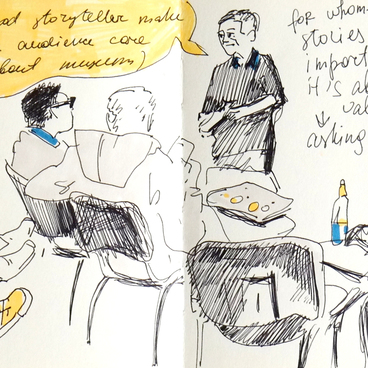 od storyteller make
audience care
bout museum)
for whom
stories
import
it's al
val
↓
asking